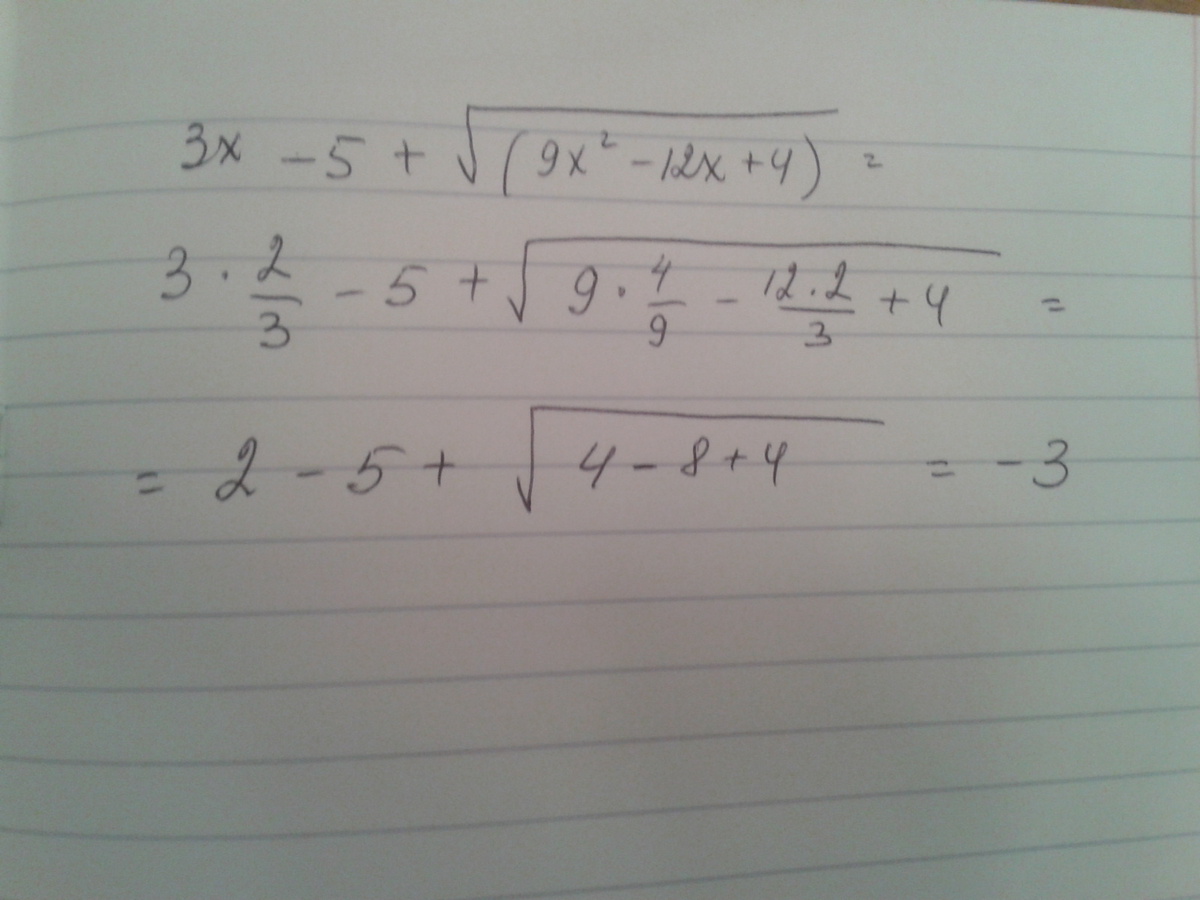 3x - 5 + √(9x² - 12x + 4) =
3 · 2/3 - 5 + √9 · 4/9 - 12·2/3 + 4 =
= 2 - 5 + √4 - 8 + 4 = -3